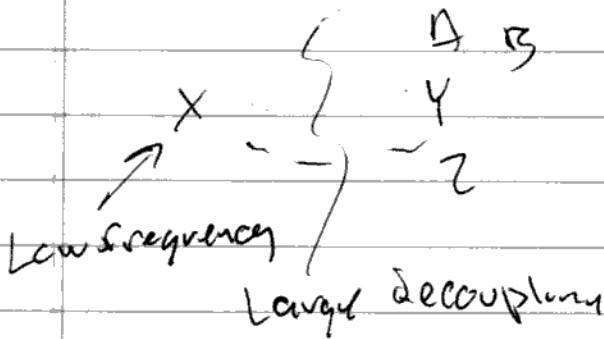 A B
X Y
Z
Low frequency
Large decoupling